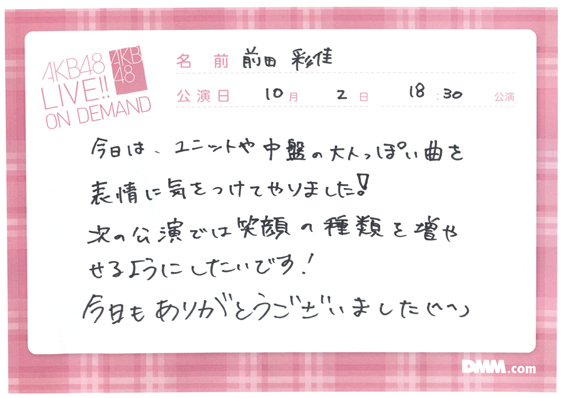 AKB48
LIVE!!
ON DEMAND
AKB
48
名前 前田 彩佳
公演日 10月 2日 18:30 公演
今日は、ユニットや中盤の大人っぽい曲を
表情に気をつけてやりました!
次の公演では笑顔の種類を増や
せるようにしたいです!
今日もありがとうございました(^^)
DMM.com